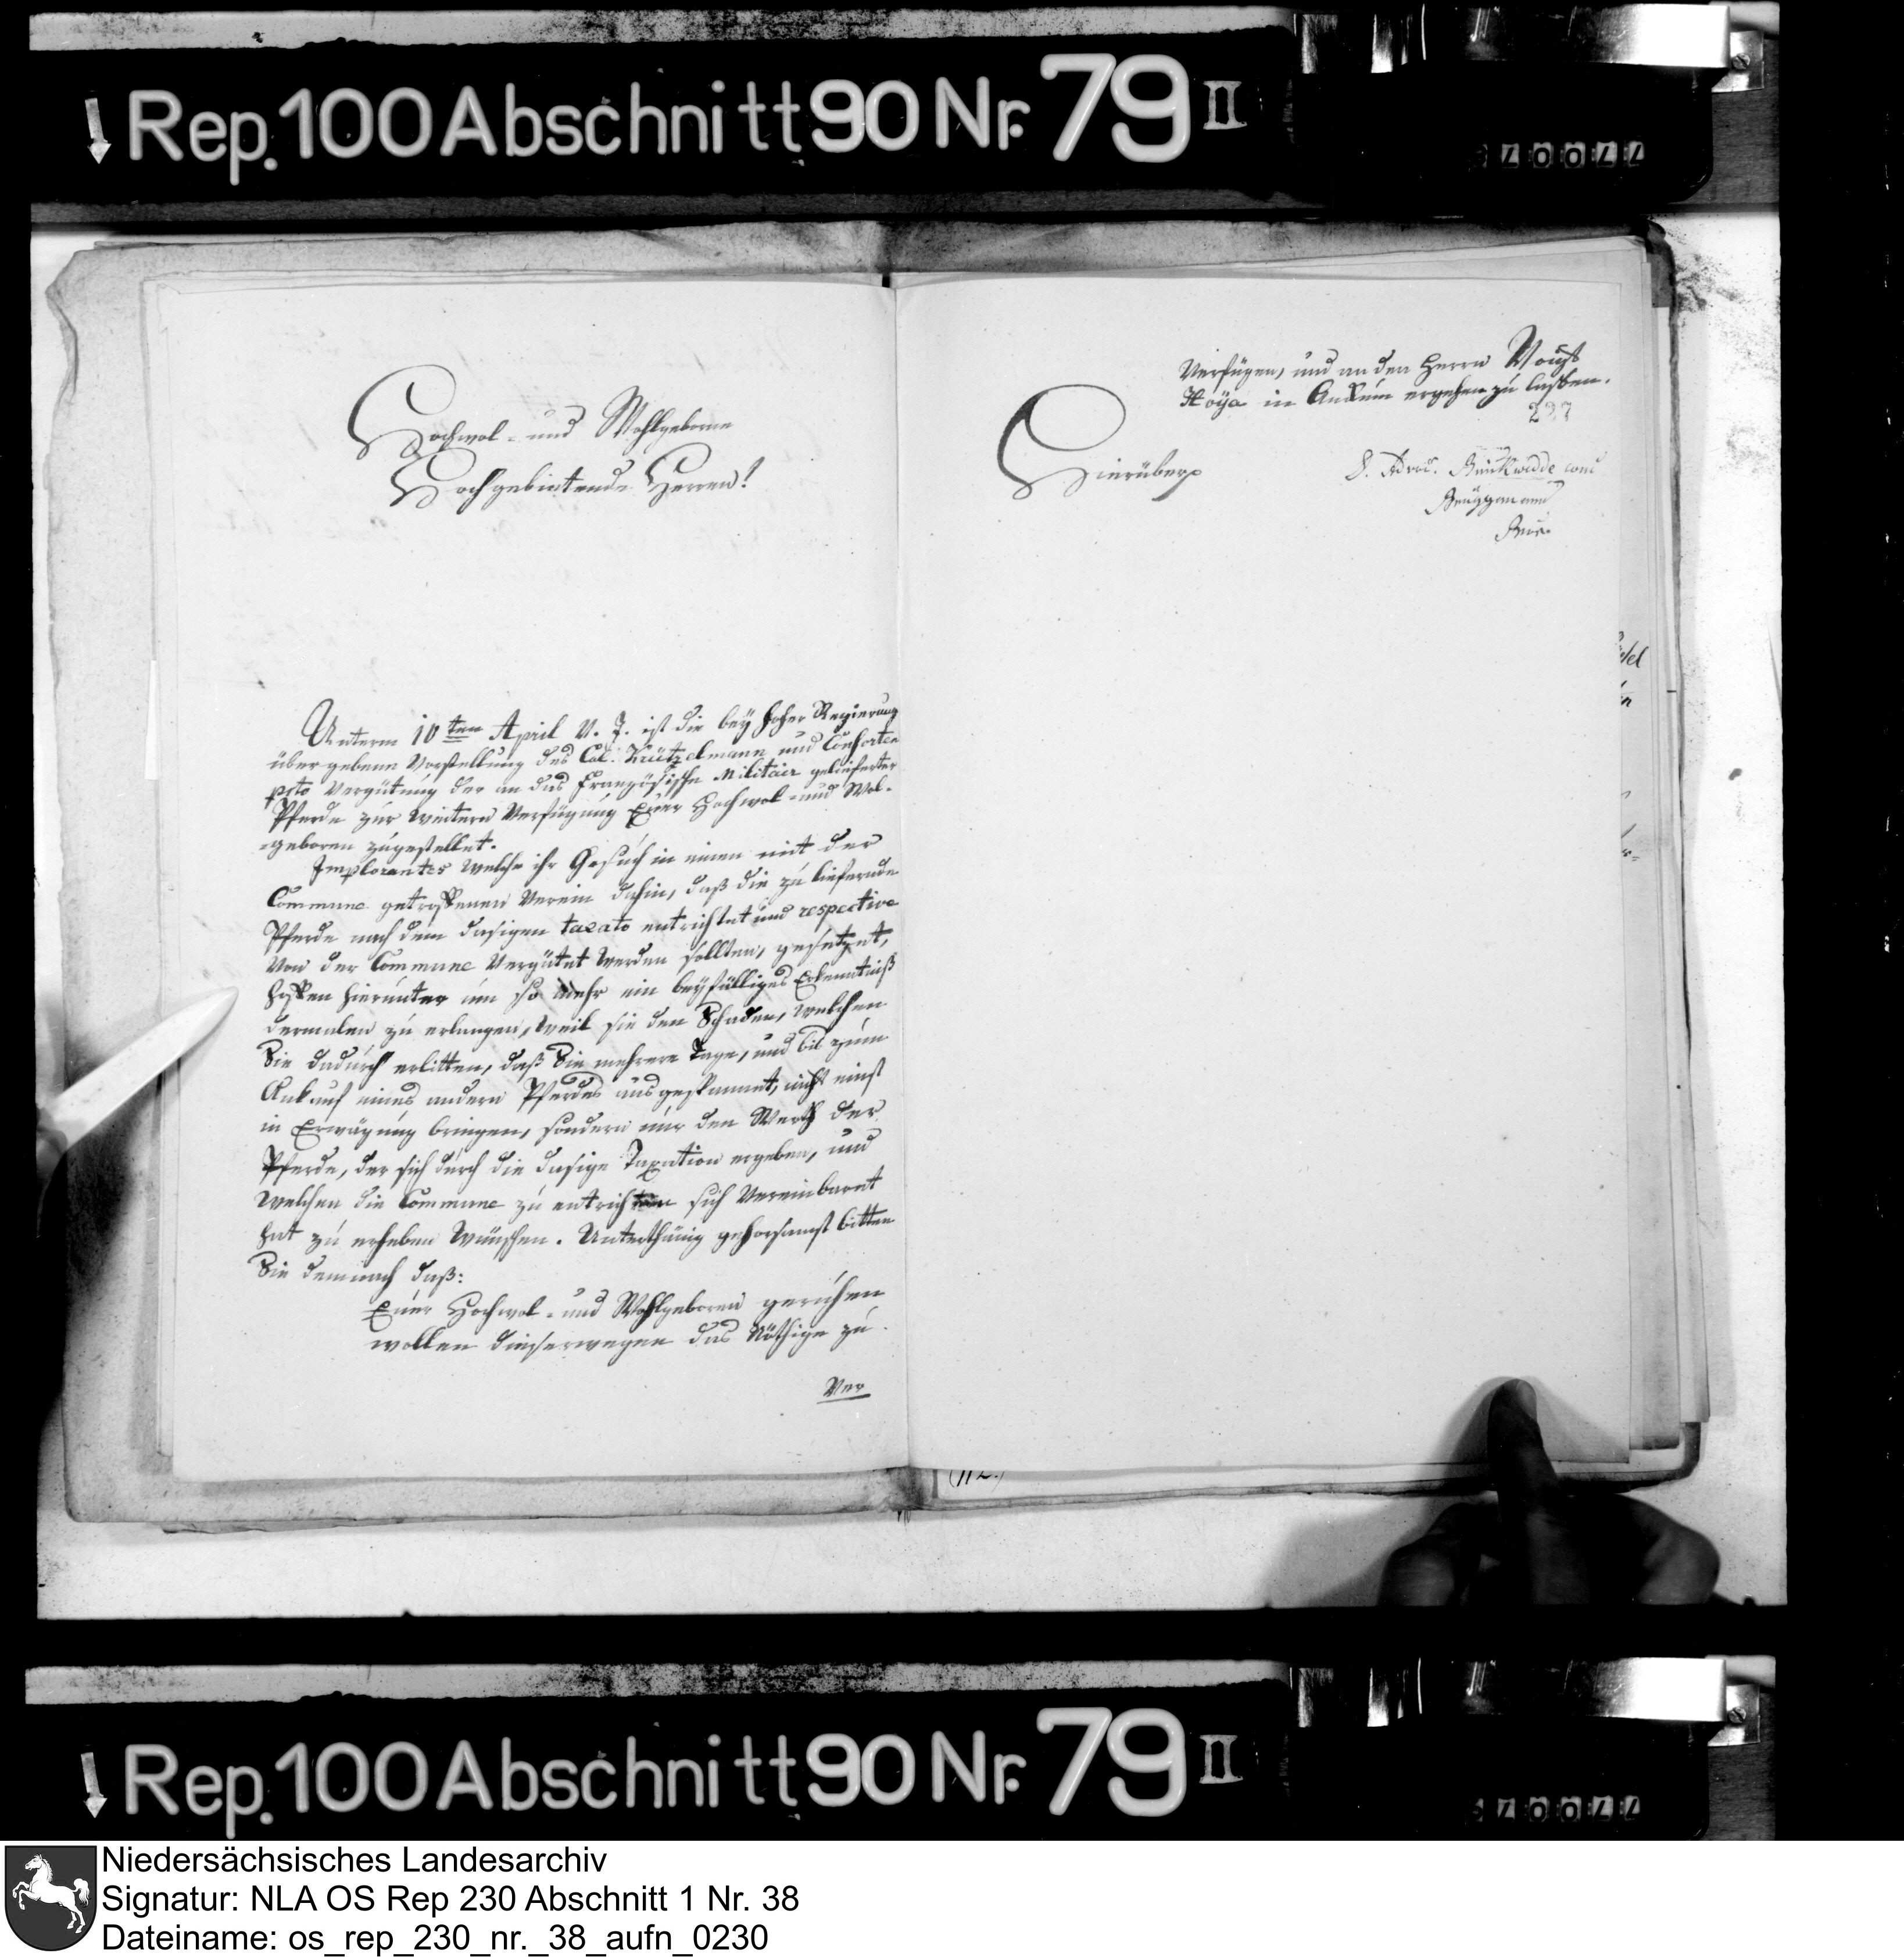 Rep. 100 Abschnitt 90 Nr. 79 II
Hochwol- und Wohlgeborne
Hochgebietende Herren!
Unterm 10ten April v. J. ist die bey hoher Regierung
übergebene Vorstellung des Col. Krützelmann und Consorten
pcto Vergütung der an das Französische Militair gelieferter
Pferde zur weitern Verfügung Euer Hochwol- und Wol-
=geboren zugestellet.
Implorantes welche ihr Gesuch in einen mit der
Commune getroffenen Verein dahin, daß die zu liefernde
Pferde nach dem dasigen taxato entrichtet und respective
von der Commune vergütet werden sollten, gesetzet,
hoffen hierunter um so mehr ein beyfälliges Erkenntniß
dermalen zu erlangen, weil sie den Schaden, welchen
Sie dadurch erlitten, daß Sie mehrere Tage, und bis zum
Ankauf eines andern Pferdes ausgespannt, nicht einst
in Erwägung bringen, sondern nur den Werth der
Pferde, der sich durch die dasige Taxation ergeben, und
welchen die Commune zu entrichten sich vereinbaret
hat zu erheben wünschen. Unterthänig gehorsamst bitten
Sie demnach daß:
Euer Hochwol- und Wohlgeboren geruhen
wollen dieserwegen das Nöthige zu
Ver
verfügen, und an den Herrn Voigt
Hoÿa in Ankum ergehen zu lassen.
237
Hierüber
Adv.
Brüggemann
(112.)
Rep. 100 Abschnitt 90 Nr. 79 II
Niedersächsisches Landesarchiv
Signatur: NLA OS Rep 230 Abschnitt 1 Nr. 38
Dateiname: os_rep_230_nr._38_aufn_0230